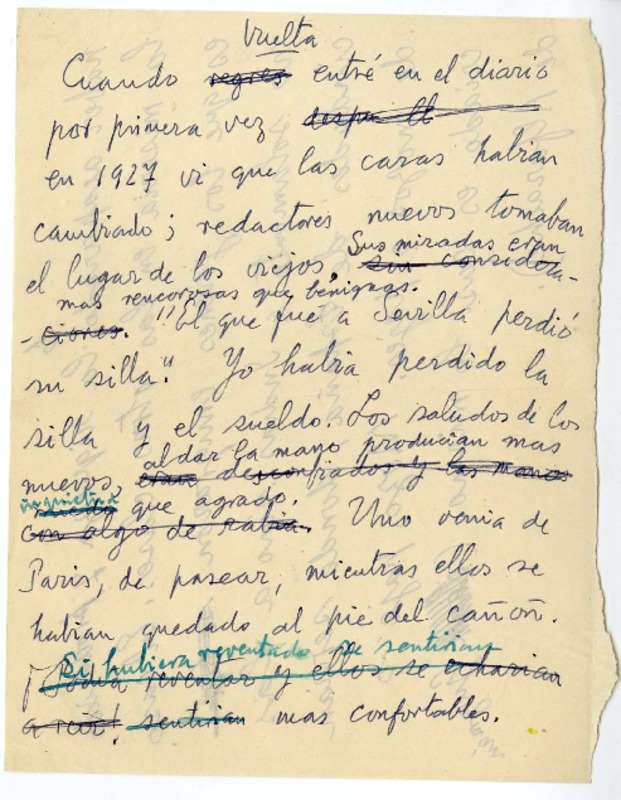 Vuelta
Cuando regres entré en el diario
por primera vez
en 1927 vi que las caras habian
cambiado; redactores nuevos tomaban
Sus miradas eran
el lugar de los viejos, sin considera-
mas rencorosas que benignas.
-ciones. "El que fue a Sevilla perdió
su silla." Yo habia perdido la
silla y el sueldo. Los saludos de los
al dar la mano producian mas
nuevos, eran desconfiados y las manos
inquietud
miedo que agrado.
con algo de rabia. Uno venia de
Paris, de pasear, mientras ellos se
habian quedado al pie del cañon.
Si hubiera reventado se sentirian
reventar y ellos se echarian
a reir! sentirian mas confortables.